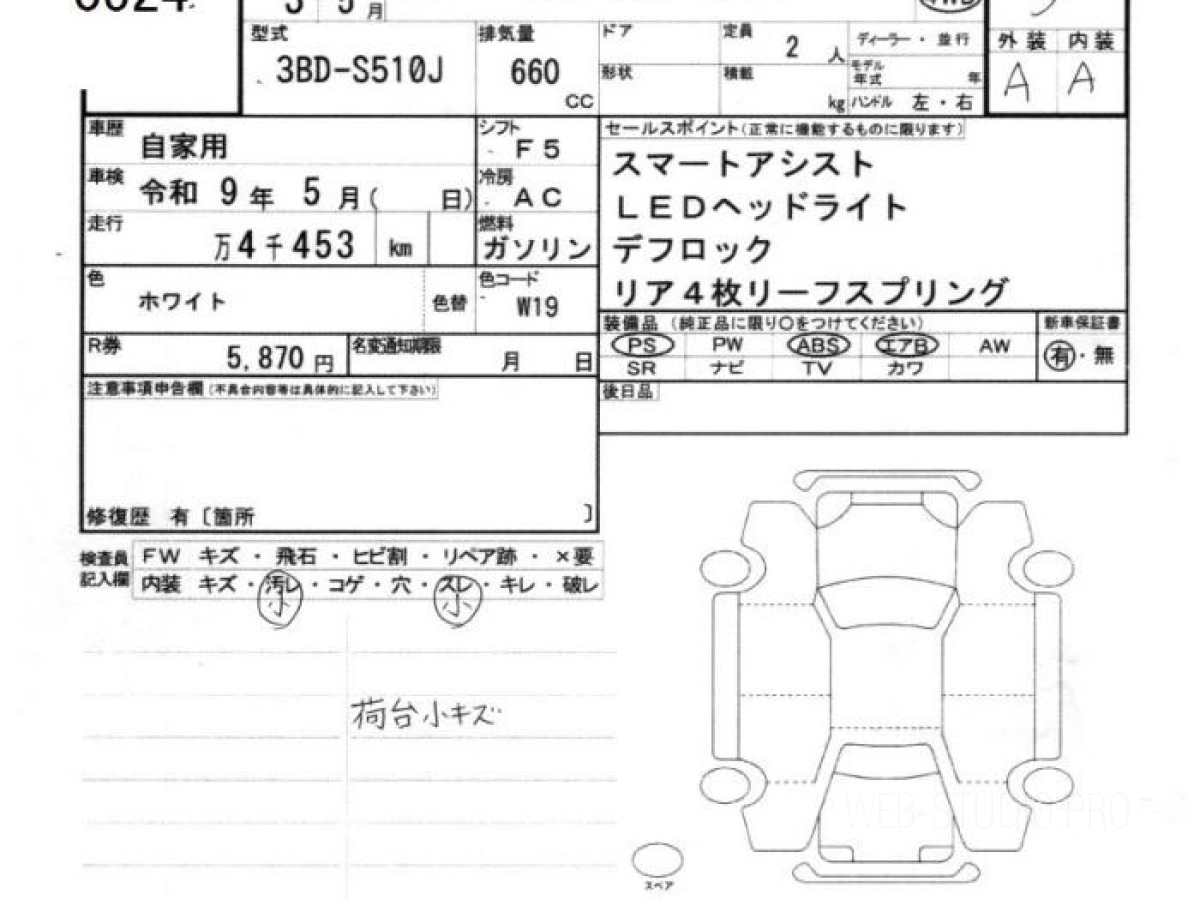 3 5 月 4WD
型式 3BD-S510J 排気量 660 CC
ドア 定員 2 人 ディーラー・並行
形状 積載 kg モデル年式 年
ハンドル 左・右
外装 内装
A A
車歴 自家用 シフト F5
車検 令和 9年 5月( 日) 冷房 AC
走行 万4千453 km 燃料 ガソリン
色 ホワイト 色替 色コード W19
R券 5,870円 名変通知期限 月 日
セールスポイント(正常に機能するものに限ります)
スマートアシスト
LEDヘッドライト
デフロック
リア4枚リーフスプリング
装備品 (純正品に限り○をつけてください) 新車保証書
PS PW ABS エアB AW 有・無
SR ナビ TV カワ
後日品
注意事項申告欄(不具合内容等は具体的に記入して下さい)
修復歴 有〔箇所 〕
検査員記入欄
FW キズ・飛石・ヒビ割・リペア跡・×要
内装 キズ・汚レ・コゲ・穴・スレ・キレ・破レ
小 小
荷台小キズ
スペア
WEB-STUDIO.PRO